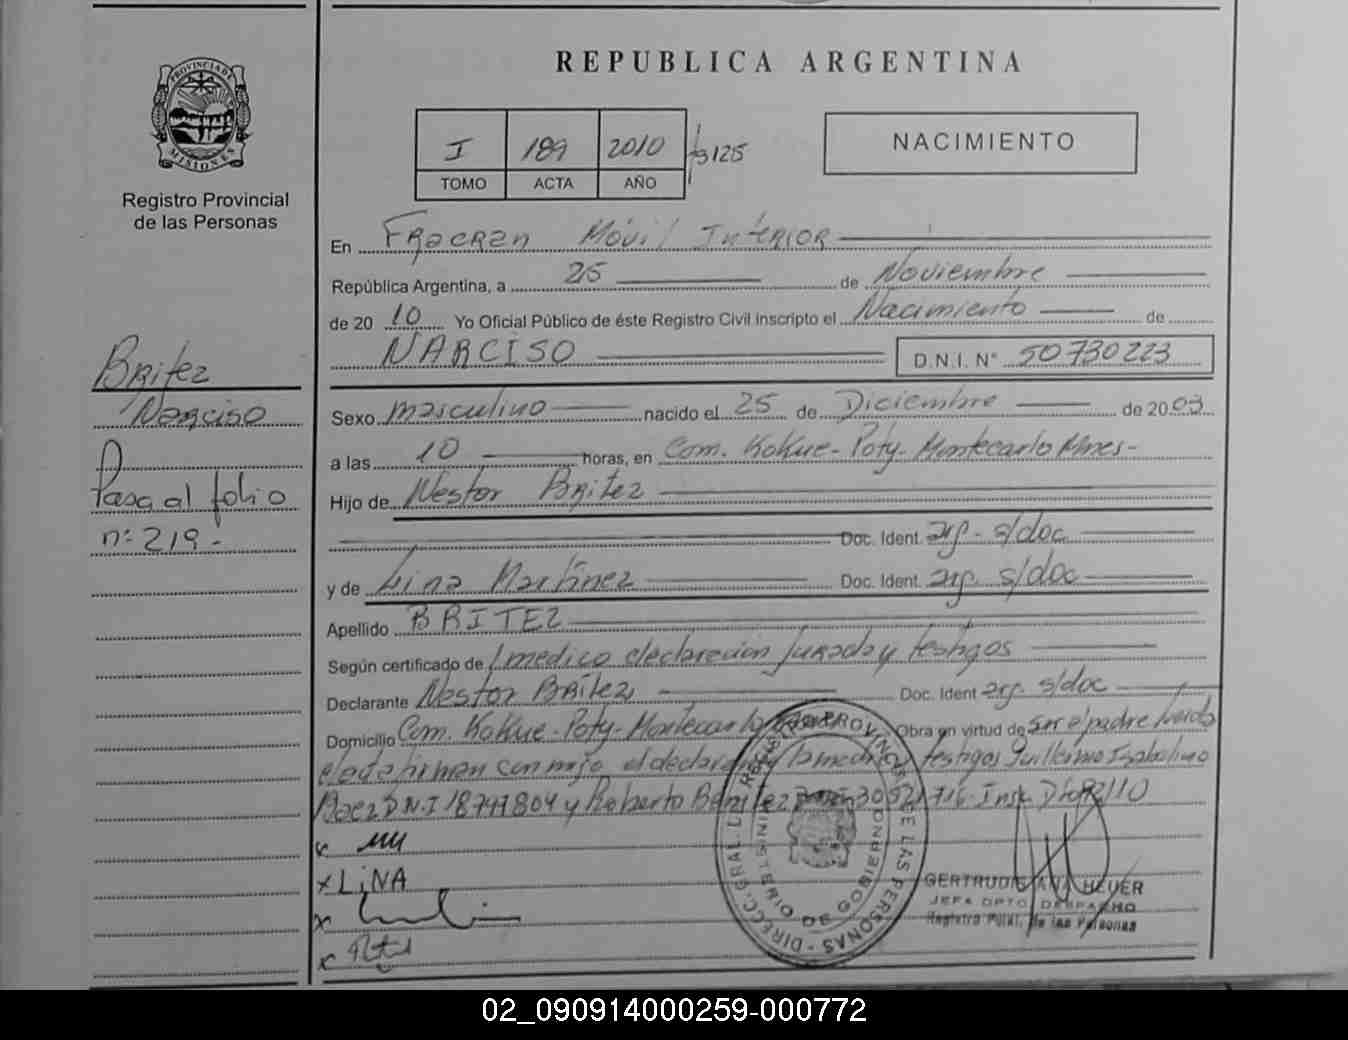 REPUBLICA ARGENTINA
PROVINCIA DE MISIONES
Registro Provincial
de las Personas
I 189 2010 3125
TOMO ACTA AÑO
NACIMIENTO
En Fracran Móvil Interior
República Argentina, a 25 de Noviembre
de 20 10 Yo Oficial Público de éste Registro Civil inscripto el Nacimiento de
NARCISO D.N.I. N° 50730223
Britez
Narciso
Pasa al folio
n: 219-
Sexo masculino nacido el 25 de Diciembre de 2003
a las 10 horas, en Com. Kokue-Poty-Montecarlo Mnes-
Hijo de Nestor Britez
Doc. Ident. arg - s/doc
y de Lina Martinez Doc. Ident. arg. s/doc
Apellido BRITEZ
Según certificado de medico declaracion jurada y testigos
Declarante Nestor Britez Doc. Ident arg. s/doc
Domicilio Com. Kokue-Poty-Montecarlo Obra en virtud de ser el padre
firman conmigo el declarante testigos Guillermo Isabelino
Baez D.N.I 18797804 y Roberto Benitez
x
x LiNA
x
x
DIRECC. GRAL. DEL REGISTRO PROVINCIAL DE LAS PERSONAS
MINISTERIO DE GOBIERNO
GERTRUDIS ANA HEUER
JEFA DPTO DESPACHO
Registro Pcial. de las Personas
02_090914000259-000772